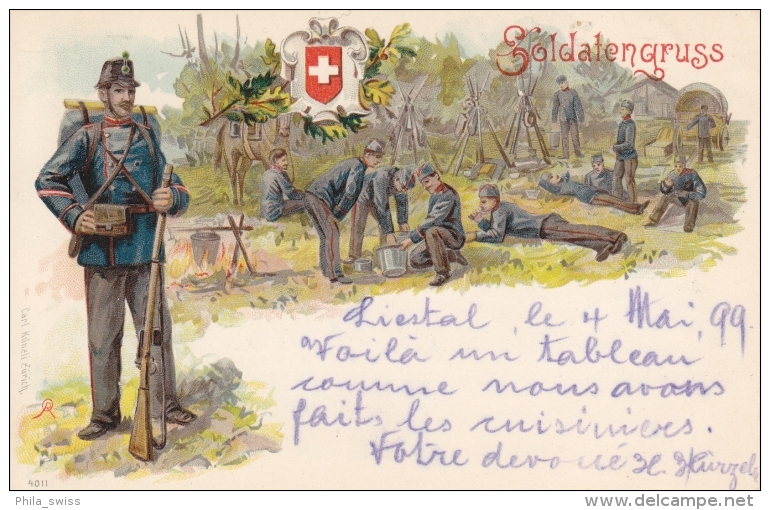 Soldatengruss
Liestal, le 4 Mai, 99.
Voilà un tableau
comme nous avons
faits les cuisiniers.
Votre devoué H.
Carl Künzli Zürich.
4011
Phila_swiss
delcampe.net